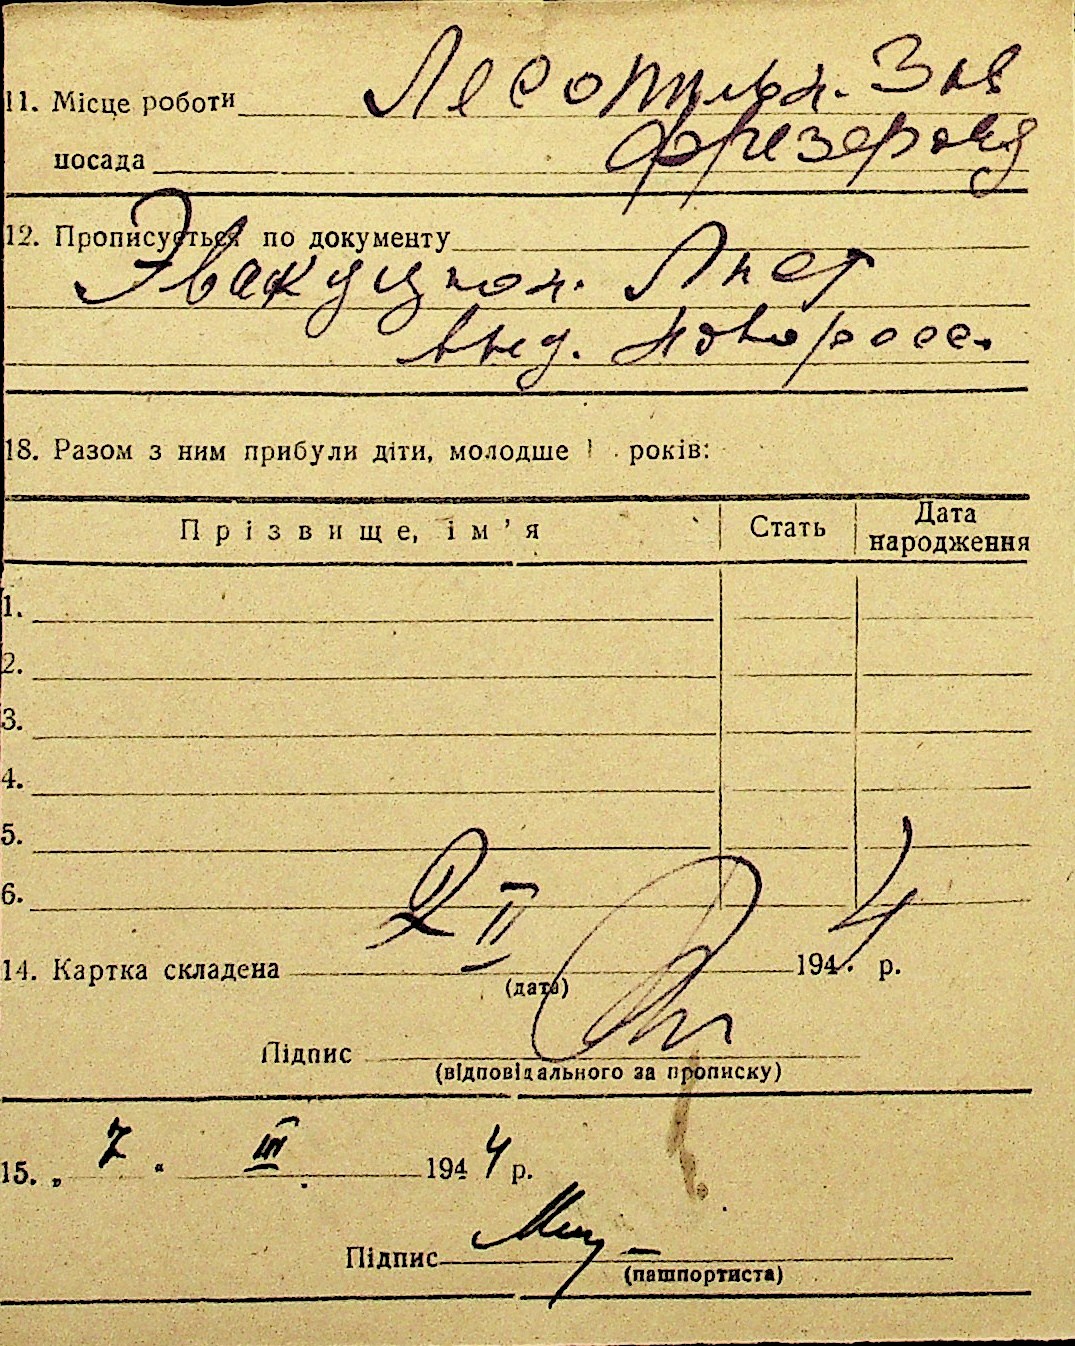 11. Місце роботи Лесопильн. Зав
посада фрезеровщ
12. Прописується по документу
Эвакуцион. Лист
выд. Новоросс.
18. Разом з ним прибули діти, молодше 1 років:
Прізвище, ім'я Стать Дата народження
1.
2.
3.
4.
5.
6.
14. Картка складена 2 II 194 4 р.
(дата)
Підпис
(відповідального за прописку)
15. „ 7 “ III 194 4 р.
Підпис
(пашпортиста)